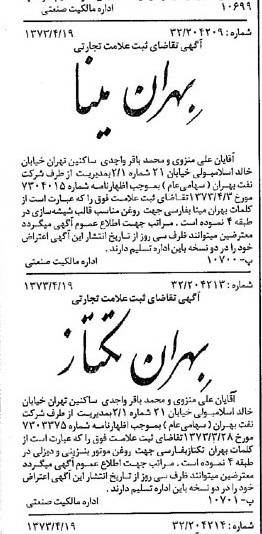 ۱۰۶۹۹ اداره مالکیت صنعتی
شماره: ۳۲/۲۰۴۲۰۹ ۱۳۷۳/۴/۱۹
آگهی تقاضای ثبت علامت تجارتی
بهران مینا
آقایان علی منزوی و محمد باقر واجدی ساکنین تهران خیابان
خالد اسلامبولی خیابان ۲۱ شماره ۲/۱ بمدیریت از طرف شرکت
نفت بهران (سهامی عام) بموجب اظهارنامه شماره ۷۳۰۴۰۱۵
مورخ ۱۳۷۳/۴/۳ تقاضای ثبت علامت فوق را که عبارت است از
کلمات بهران مینا بفارسی جهت روغن مناسب قالب شیشه‌سازی در
طبقه ۴ نموده است. مراتب جهت اطلاع عموم آگهی میگردد
معترضین میتوانند ظرف سی روز از تاریخ انتشار این آگهی اعتراض
خود را در دو نسخه باین اداره تسلیم دارند.
پ-۱۰۷۰۰ اداره مالکیت صنعتی
شماره: ۳۲/۲۰۴۲۱۳ ۱۳۷۳/۴/۱۹
آگهی تقاضای ثبت علامت تجارتی
بهران تکتاز
آقایان علی منزوی و محمد باقر واجدی ساکنین تهران خیابان
خالد اسلامبولی خیابان ۲۱ شماره ۲/۱ بمدیریت از طرف شرکت
نفت بهران (سهامی عام) بموجب اظهارنامه شماره ۷۳۰۳۳۷۵
مورخ ۱۳۷۳/۳/۲۸ تقاضای ثبت علامت فوق را که عبارت است از
کلمات بهران تکتاز بفارسی جهت روغن موتور بنزینی و دیزلی در
طبقه ۴ نموده است. مراتب جهت اطلاع عموم آگهی میگردد
معترضین میتوانند ظرف سی روز از تاریخ انتشار این آگهی اعتراض
خود را در دو نسخه باین اداره تسلیم دارند.
پ-۱۰۷۰۱ اداره مالکیت صنعتی
شماره: ۳۲/۲۰۴۲۱۴ ۱۳۷۳/۴/۱۹